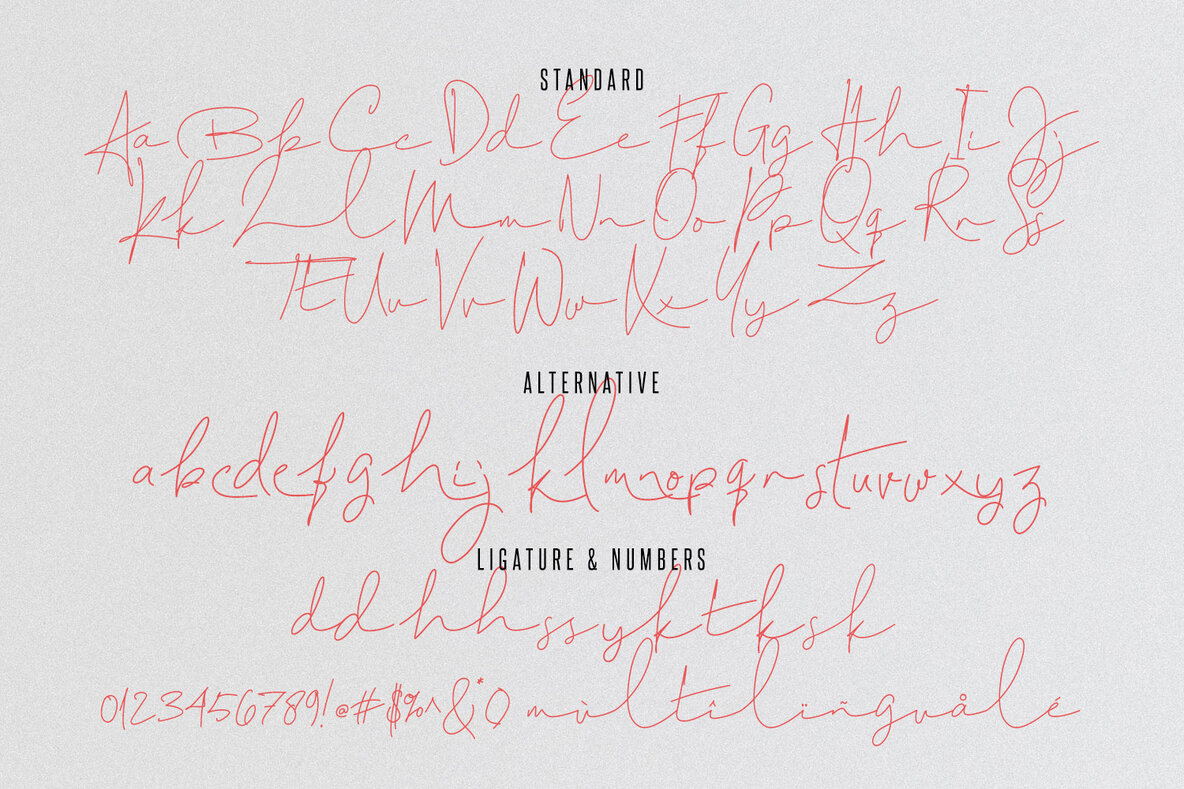 STANDARD
Aa Bb Cc Dd Ee Ff Gg Hh Ii Jj
Kk Ll Mm Nn Oo Pp Qq Rr Ss
Tt Uu Vv Ww Xx Yy Zz
ALTERNATIVE
abcdefghijklmnopqrstuvwxyz
LIGATURE & NUMBERS
dd hh ss yk tk sk
0123456789!@#$%^&*() mùltîlïñguålé